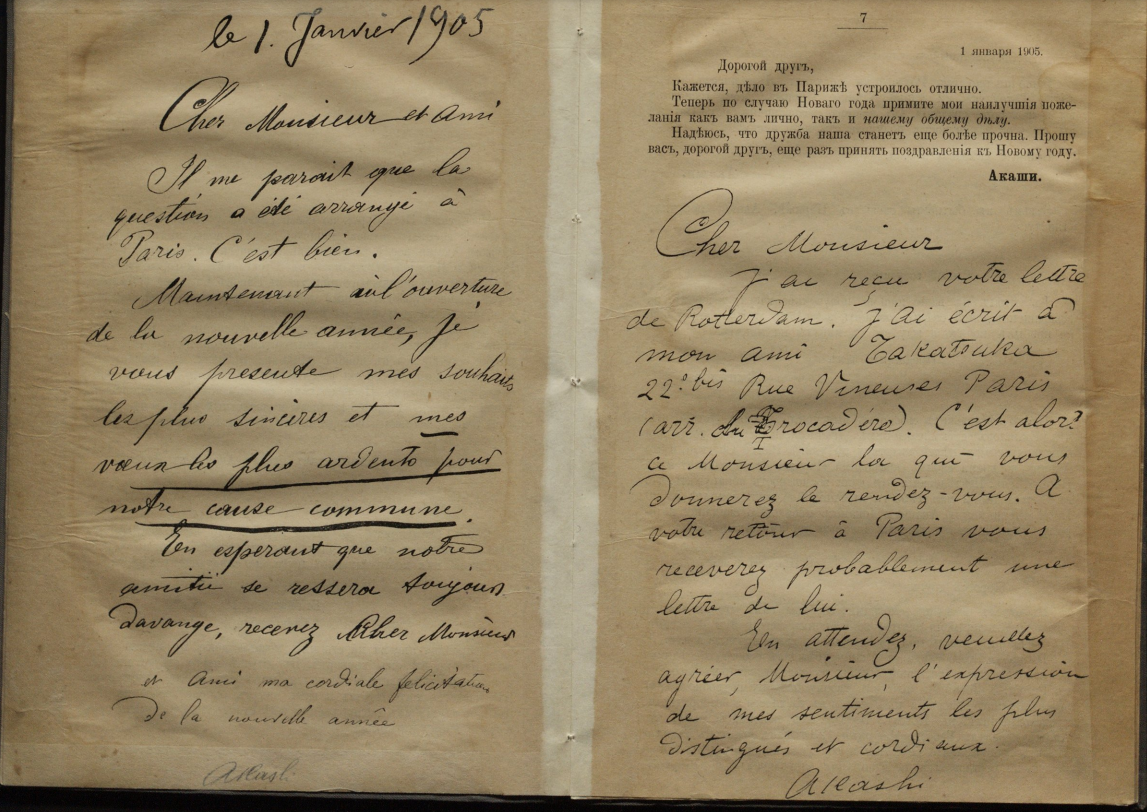 le 1. Janvier 1905
Cher Monsieur et ami
Il me parait que la
question a été arrangé à
Paris. C'est bien.
Maintenant à l'ouverture
de la nouvelle année, je
vous presente mes souhaits
les plus sincères et mes
vœux les plus ardents pour
notre cause commune.
En esperant que notre
amitié se ressera toujours
davange, recevez Cher Monsieur
et ami ma cordiale felicitation
de la nouvelle année
Akashi
7
1 января 1905.
Дорогой другъ,
Кажется, дѣло въ Парижѣ устроилось отлично.
Теперь по случаю Новаго года примите мои наилучшія поже-
ланія какъ вамъ лично, такъ и нашему общему дѣлу.
Надѣюсь, что дружба наша станетъ еще болѣе прочна. Прошу
васъ, дорогой другъ, еще разъ принять поздравленія къ Новому году.
Акаши.
Cher Monsieur
J'ai reçu votre lettre
de Rotterdam. J'ai écrit à
mon ami Takatsuka
22 bis Rue Vineuses Paris
(arr. du Trocadéro). C'est alors
ce Monsieur la qui vous
donnerez le rendez-vous. A
votre retour à Paris vous
receverez probablement une
lettre de lui.
En attendez, veuillez
agréer, Monsieur, l'expression
de mes sentiments les plus
distingués et cordiaux.
Akashi